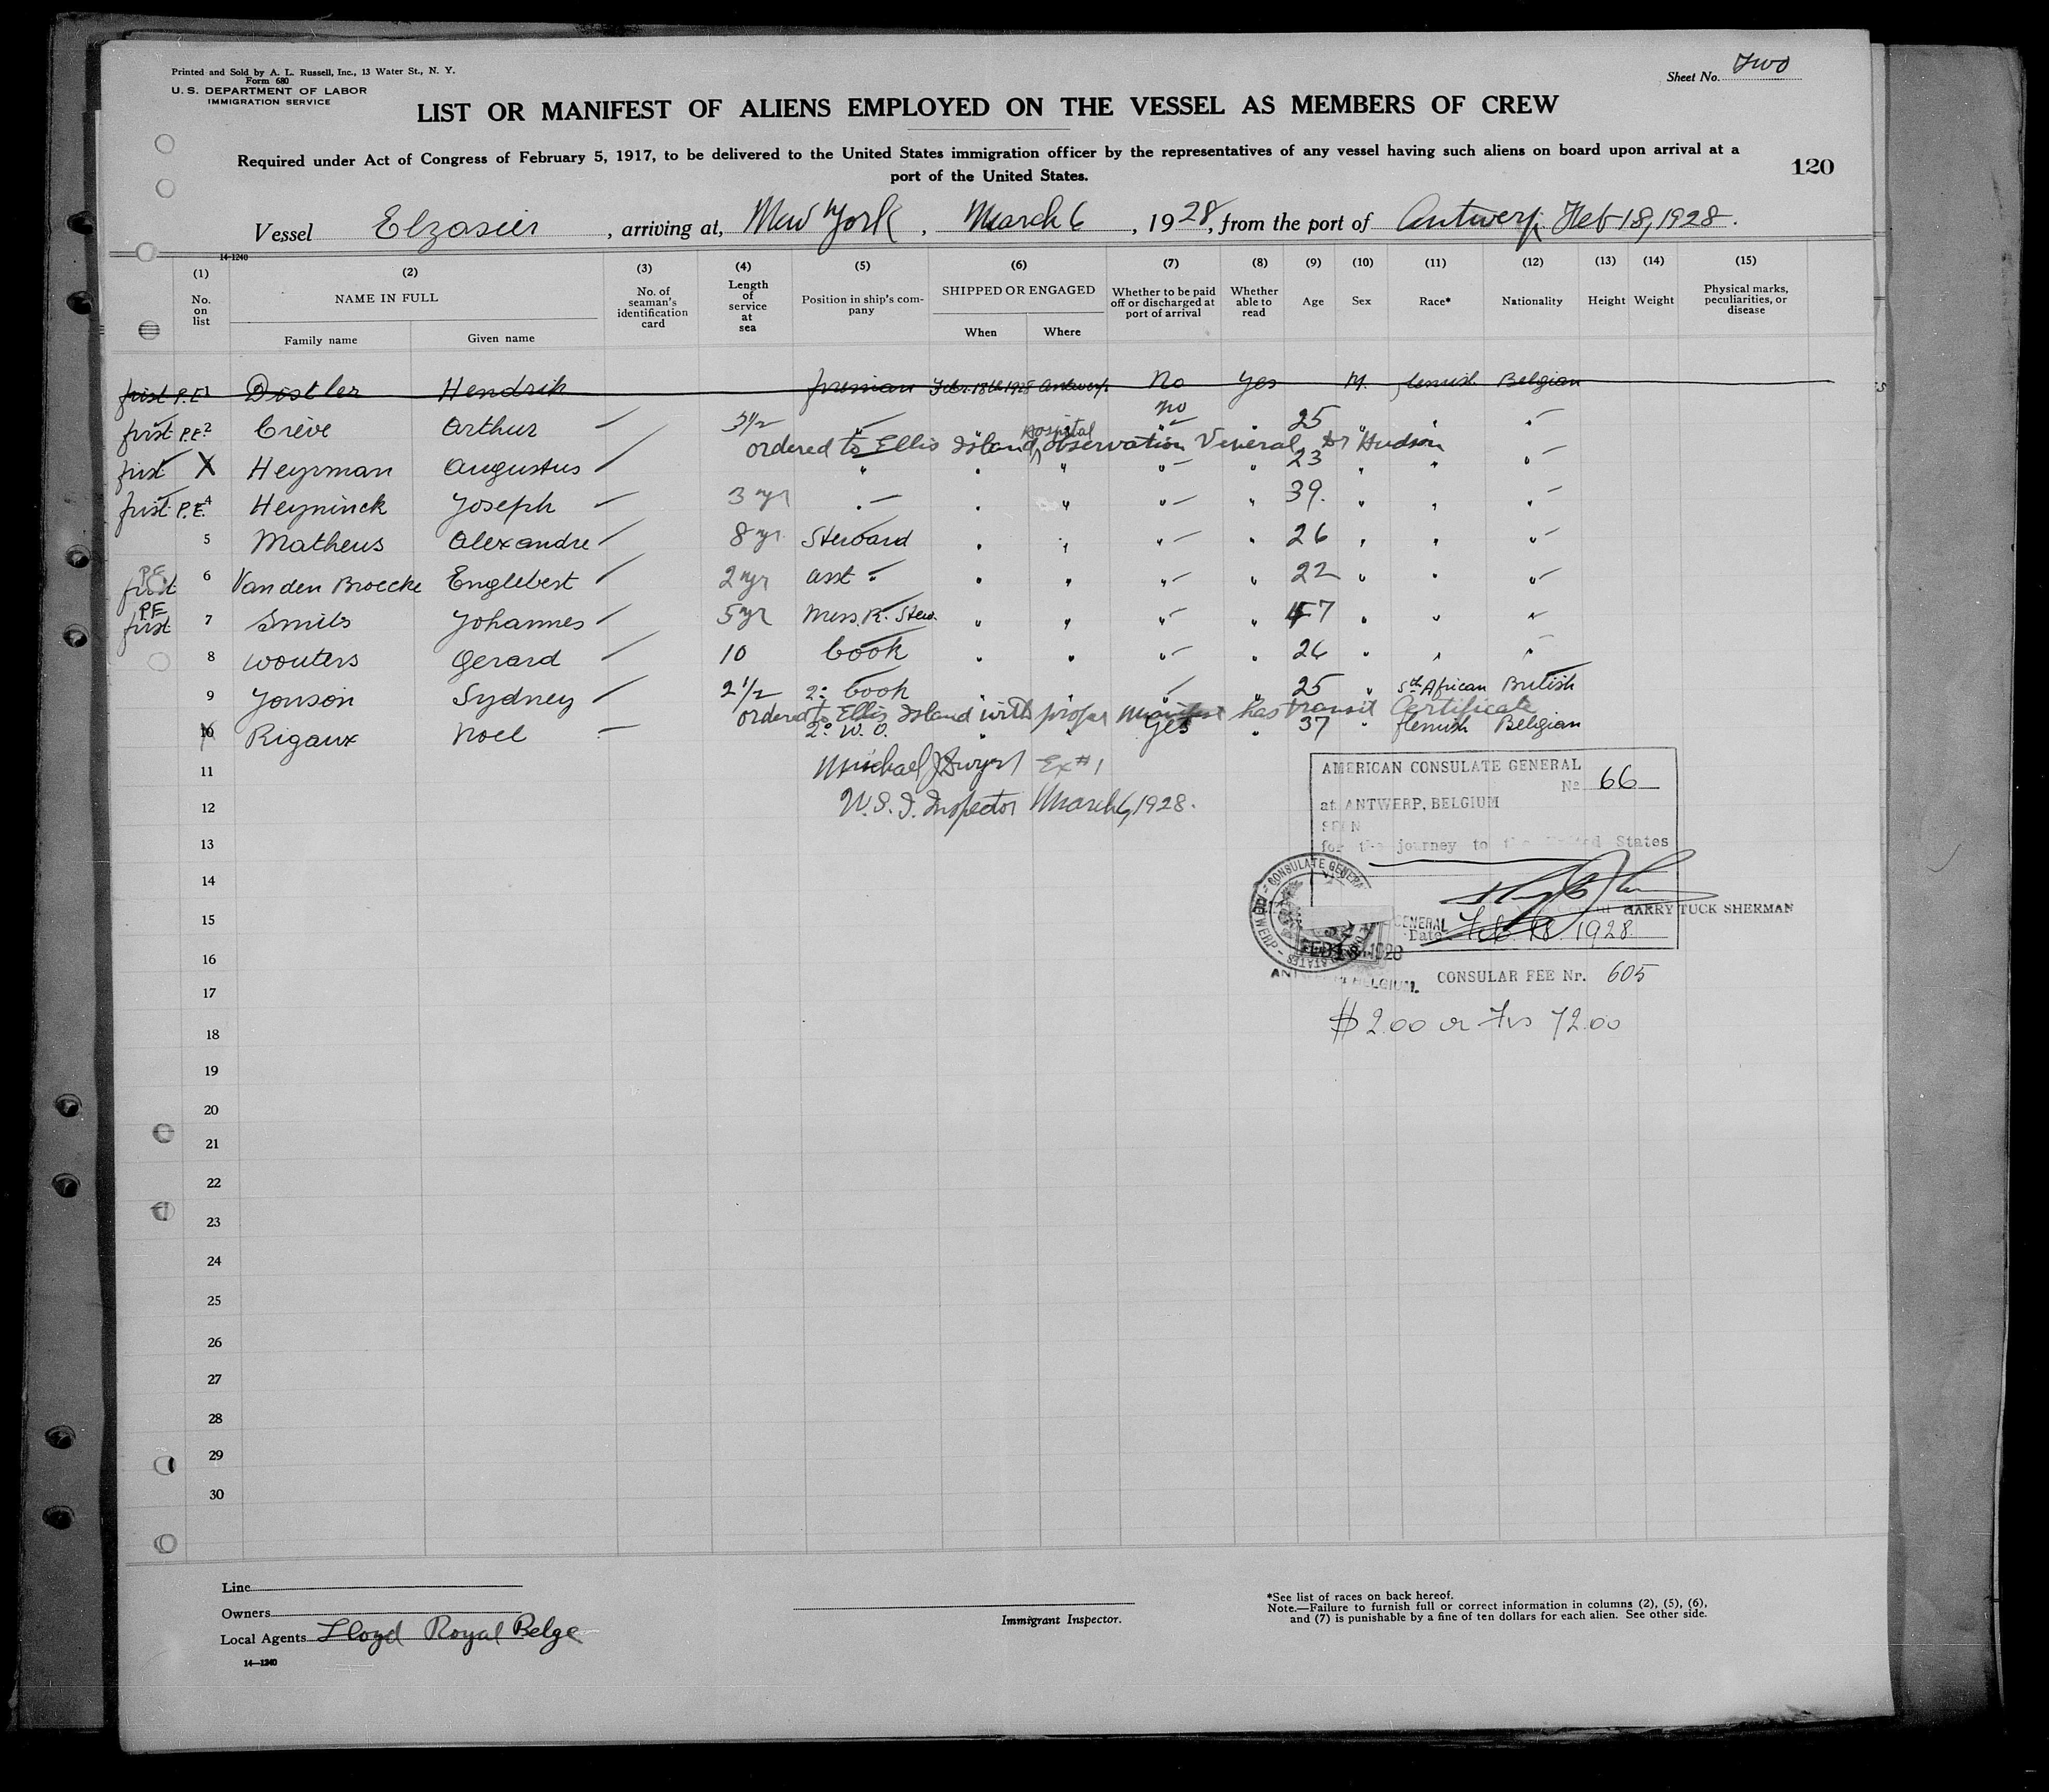 Printed and Sold by A. L. Russell, Inc., 13 Water St., N. Y.
Form 680
U. S. DEPARTMENT OF LABOR
IMMIGRATION SERVICE
Sheet No. Two
LIST OR MANIFEST OF ALIENS EMPLOYED ON THE VESSEL AS MEMBERS OF CREW
Required under Act of Congress of February 5, 1917, to be delivered to the United States immigration officer by the representatives of any vessel having such aliens on board upon arrival at a
port of the United States.
120
Vessel Elzasier, arriving at, New York, March 6, 1928, from the port of Antwerp Feb 18, 1928.
14-1240
(1) (2) (3) (4) (5) (6) (7) (8) (9) (10) (11) (12) (13) (14) (15)
No. on list NAME IN FULL No. of seaman's identification card Length of service at sea Position in ship's company SHIPPED OR ENGAGED Whether to be paid off or discharged at port of arrival Whether able to read Age Sex Race* Nationality Height Weight Physical marks, peculiarities, or disease
Family name Given name When Where
first P.E. 1 Distler Hendrik fireman Febr. 18th 1928 Antwerp No Yes M. flemish Belgian
first P.E. 2 Crève Arthur 3 1/2 " " " no " 25 " " "
ordered to Ellis Island, Hospital observation Veneral Dr Hudson
first X Heyrman Augustus " " " " " 23 " " "
first P.E. 4 Heyninck Joseph 3 yr " " " " " 39. " " "
5 Matheus Alexandre 8 yr Steward " " " " 26 " " "
P.E. first 6 Van den Broecke Englebert 2 yr asst " " " " " 22 " " "
P.E. first 7 Smits Johannes 5 yr Mess. R. Stew. " " " " 47 " " "
8 Wouters Gerard 10 Cook " " " " 26 " " "
9 Jonson Sydney 2 1/2 2° Cook " " " " 25 " Sth African British
ordered to Ellis Island with proper Manifest has transit Certificate
10 Rigaux Noel 2° W. O. " " Yes " 37 " flemish Belgian
11
Michael J Dwyer Ex #1
12
U.S. I. Inspector March 6, 1928.
AMERICAN CONSULATE GENERAL
No 66
at ANTWERP, BELGIUM
SEEN
for the journey to the United States
13
14
15
HARRY TUCK SHERMAN
Date Feb. 18 1928
FEB 18 1928
16
ANTWERP, BELGIUM.
CONSULAR FEE Nr. 605
17
$ 2.00 or Frs 72.00
18
19
20
21
22
23
24
25
26
27
28
29
30
Line
Owners
Local Agents Lloyd Royal Belge
14—1240
Immigrant Inspector.
*See list of races on back hereof.
Note.—Failure to furnish full or correct information in columns (2), (5), (6),
and (7) is punishable by a fine of ten dollars for each alien. See other side.